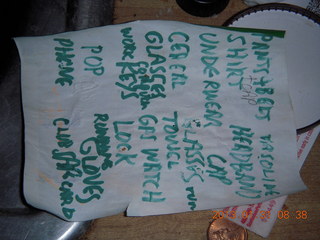 PANTS-BELT
SHIRT
UNDERWEAR
CEREAL
GLASSES
FOR
WORK
KEYS
POP
PHONE
VASELINE
HEADBAND
CAP
GLASSES RUN
TOWEL
GA WATCH
LOCK
RUNNING
GLOVES
CLIPPER CARD
08:38